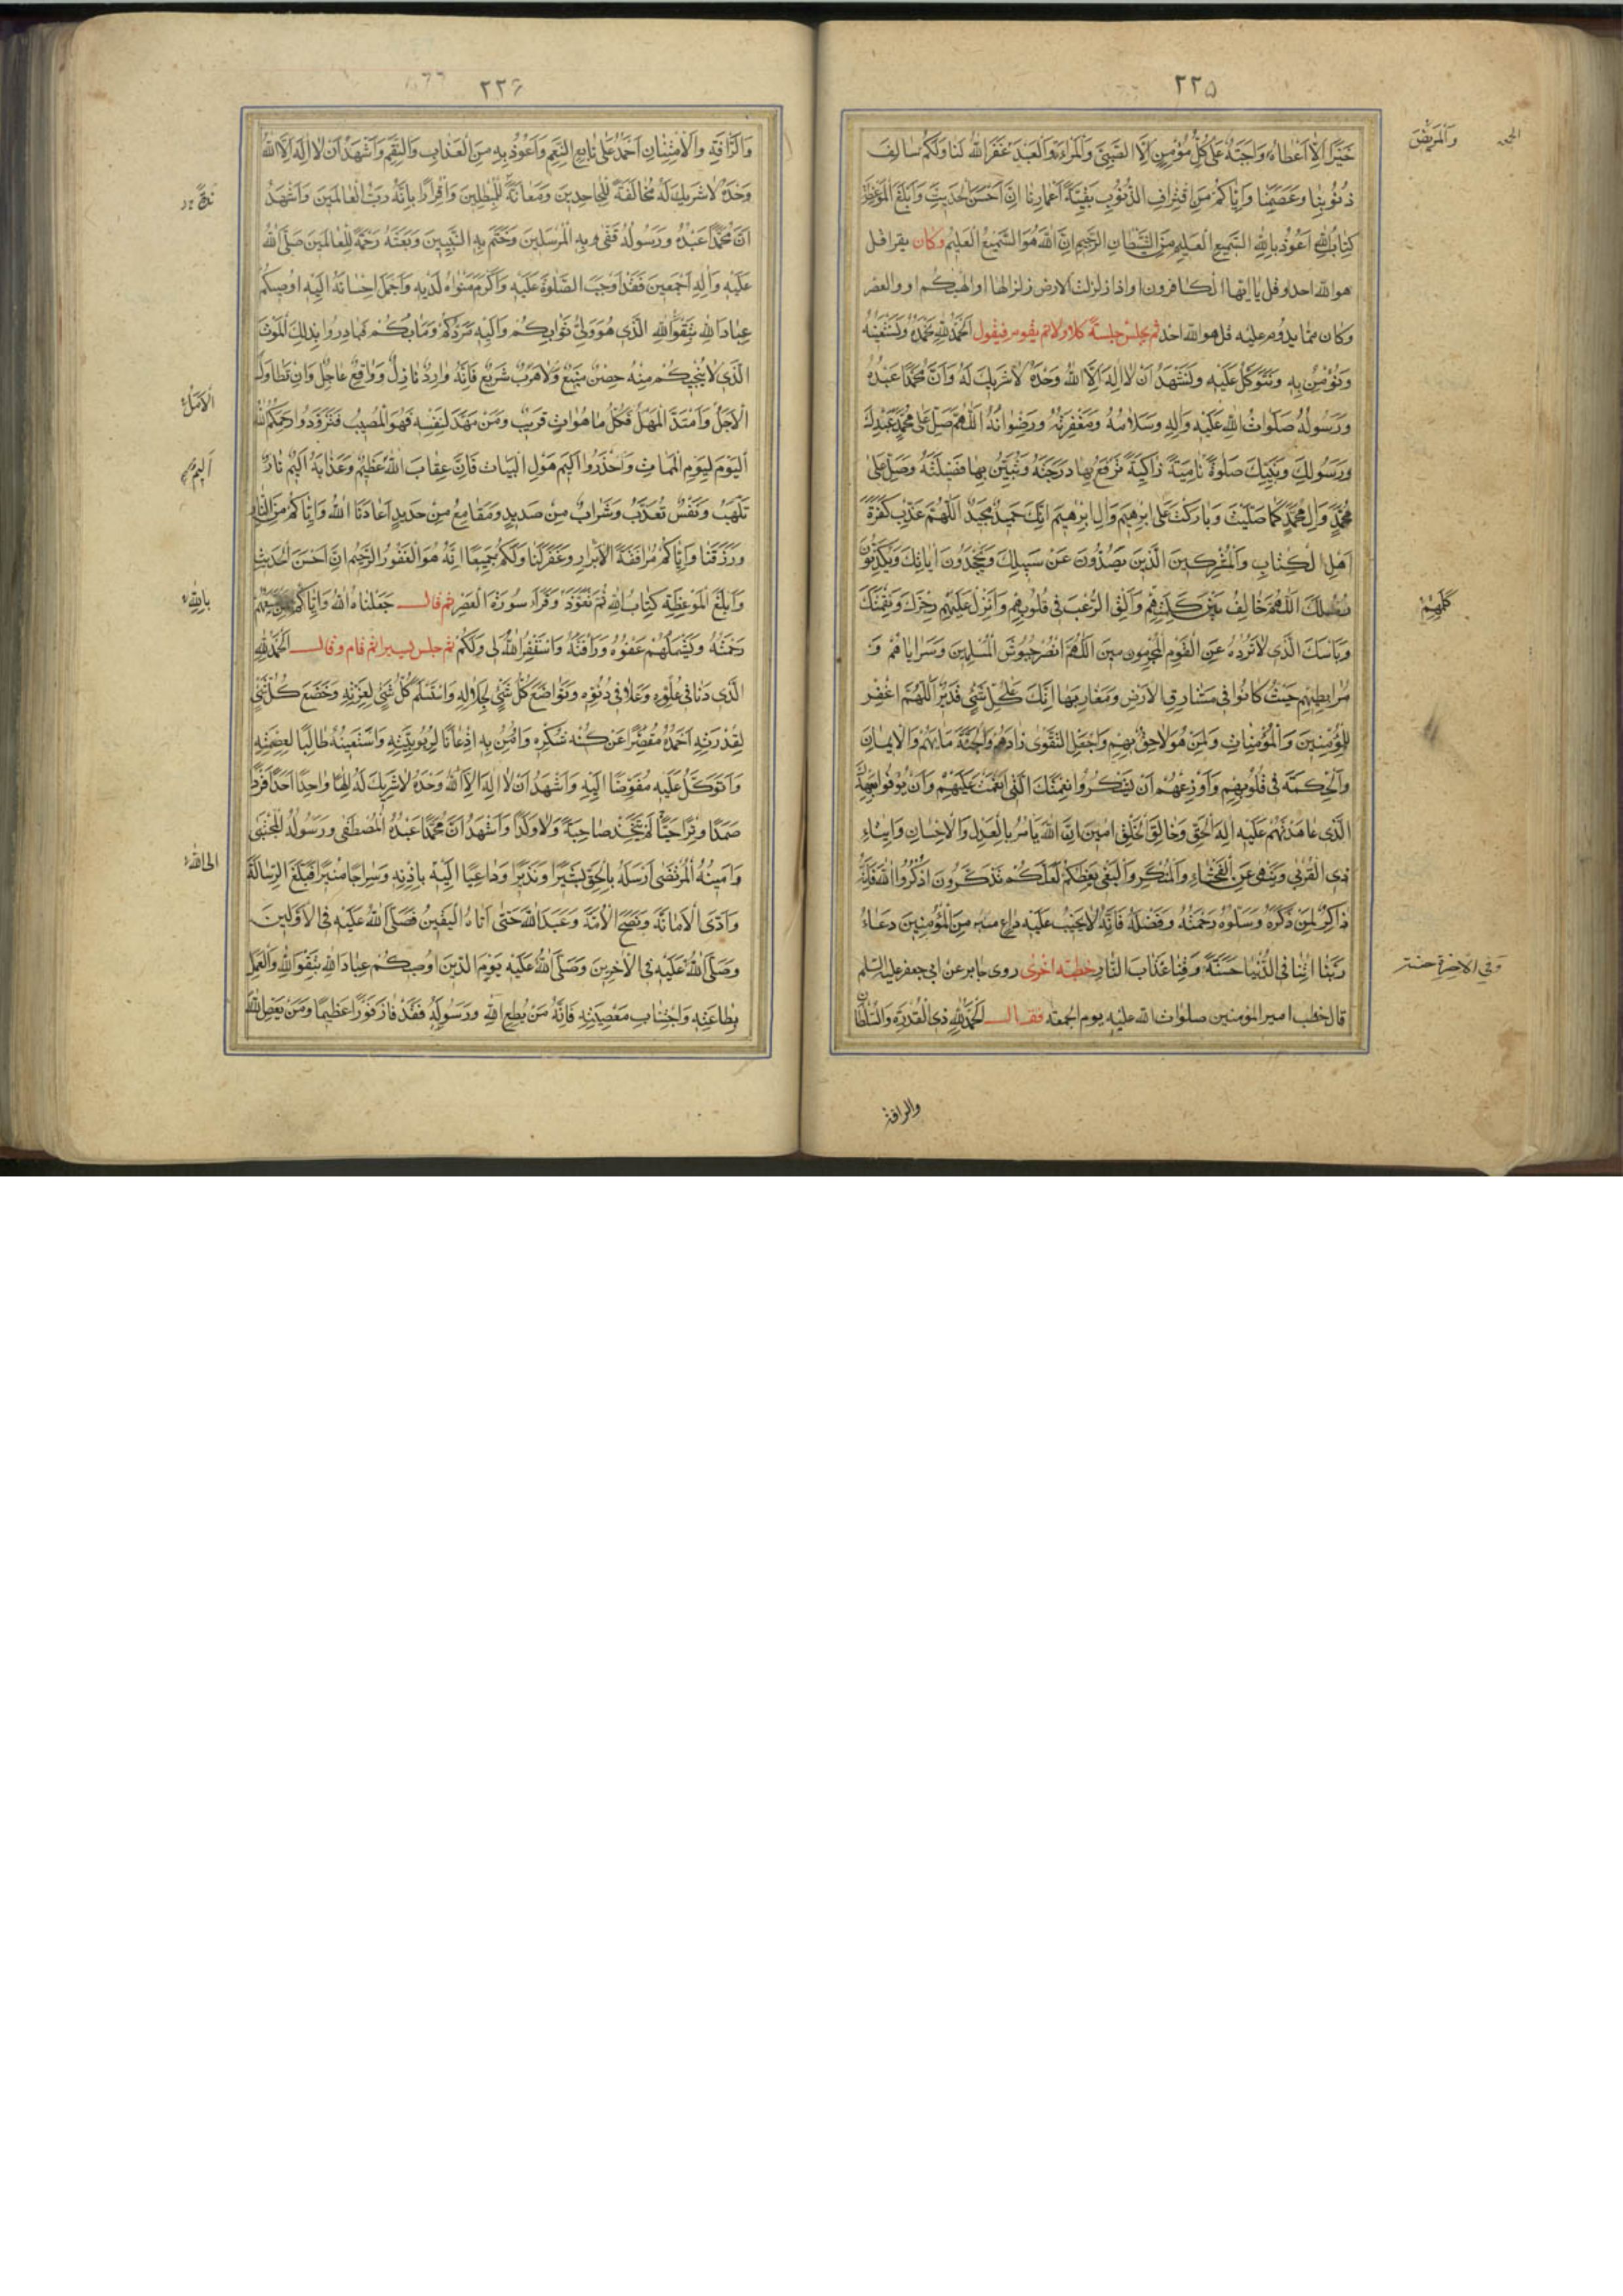 ٢٢٥
خَيْرًا اِلَّا اَعْطَاهُ وَاجِبَةٌ عَلٰى كُلِّ مُؤْمِنٍ اِلَّا الصَّبِىَّ وَالْمَرْاَةَ وَالْعَبْدَ غَفَرَ اللّٰهُ لَنَا وَلَكُمْ سَالِفَ
وَالْمَرِيْضَ
ذُنُوْبِنَا وَعَصَمَنَا وَاِيَّاكُمْ مِنِ اقْتِرَافِ الذُّنُوْبِ بَقِيَّةَ اَعْمَارِنَا اِنَّ اَحْسَنَ الْحَدِيْثِ وَاَبْلَغَ الْمَوْعِظَةِ
كِتَابُ اللّٰهِ اَعُوْذُ بِاللّٰهِ السَّمِيْعِ الْعَلِيْمِ مِنَ الشَّيْطَانِ الرَّجِيْمِ اِنَّ اللّٰهَ هُوَ السَّمِيْعُ الْعَلِيْمُ وكان يقرا قل
هو الله احد وقل يا ايها الكافرون او اذا زلزلت الارض زلزالها او الهيكم او والعصر
وكان مما يدوم عليه قل هو الله احد ثم يجلس جلسة كلا ولا ثم يقوم فيقول اَلْحَمْدُ لِلّٰهِ نَحْمَدُهُ وَنَسْتَعِيْنُهُ
وَنُؤْمِنُ بِهِ وَنَتَوَكَّلُ عَلَيْهِ وَنَشْهَدُ اَنْ لَا اِلٰهَ اِلَّا اللّٰهُ وَحْدَهُ لَا شَرِيْكَ لَهُ وَاَنَّ مُحَمَّدًا عَبْدُهُ
وَرَسُوْلُهُ صَلَوَاتُ اللّٰهِ عَلَيْهِ وَاٰلِهِ وَسَلَامُهُ وَمَغْفِرَتُهُ وَرِضْوَانُهُ اَللّٰهُمَّ صَلِّ عَلٰى مُحَمَّدٍ عَبْدِكَ
وَرَسُوْلِكَ وَنَبِيِّكَ صَلٰوةً نَامِيَةً زَاكِيَةً تَرْفَعُ بِهَا دَرَجَتَهُ وَتُبَيِّنُ بِهَا فَضِيْلَتَهُ وَصَلِّ عَلٰى
مُحَمَّدٍ وَاٰلِ مُحَمَّدٍ كَمَا صَلَّيْتَ وَبَارَكْتَ عَلٰى اِبْرٰهِيْمَ وَاٰلِ اِبْرٰهِيْمَ اِنَّكَ حَمِيْدٌ مَجِيْدٌ اَللّٰهُمَّ عَذِّبْ كَفَرَةَ
اَهْلِ الْكِتَابِ وَالْمُشْرِكِيْنَ الَّذِيْنَ يَصُدُّوْنَ عَنْ سَبِيْلِكَ وَيَجْحَدُوْنَ اٰيَاتِكَ وَيُكَذِّبُوْنَ
رُسُلَكَ اَللّٰهُمَّ خَالِفْ بَيْنَ كَلِمَتِهِمْ وَاَلْقِ الرُّعْبَ فِى قُلُوْبِهِمْ وَاَنْزِلْ عَلَيْهِمْ رِجْزَكَ وَنِقْمَتَكَ
كَلِمِهِمْ
وَبَاْسَكَ الَّذِى لَا تَرُدُّهُ عَنِ الْقَوْمِ الْمُجْرِمِيْنَ اَللّٰهُمَّ انْصُرْ جُيُوْشَ الْمُسْلِمِيْنَ وَسَرَايَاهُمْ وَ
مُرَابِطِيْهِمْ حَيْثُ كَانُوْا فِى مَشَارِقِ الْاَرْضِ وَمَغَارِبِهَا اِنَّكَ عَلٰى كُلِّ شَىْءٍ قَدِيْرٌ اَللّٰهُمَّ اغْفِرْ
لِلْمُؤْمِنِيْنَ وَالْمُؤْمِنَاتِ وَلِمَنْ هُوَ لَاحِقٌ بِهِمْ وَاجْعَلِ التَّقْوٰى زَادَهُمْ وَالْجَنَّةَ مَاٰبَهُمْ وَالْاِيْمَانَ
وَالْحِكْمَةَ فِى قُلُوْبِهِمْ وَاَوْزِعْهُمْ اَنْ يَشْكُرُوْا نِعْمَتَكَ الَّتِى اَنْعَمْتَ عَلَيْهِمْ وَاَنْ يُوْفُوْا بِعَهْدِكَ
الَّذِى عَاهَدْتَهُمْ عَلَيْهِ اِلٰهَ الْحَقِّ وَخَالِقَ الْخَلْقِ اٰمِيْنَ اِنَّ اللّٰهَ يَاْمُرُ بِالْعَدْلِ وَالْاِحْسَانِ وَاِيْتَاءِ
ذِى الْقُرْبٰى وَيَنْهٰى عَنِ الْفَحْشَاءِ وَالْمُنْكَرِ وَالْبَغْىِ يَعِظُكُمْ لَعَلَّكُمْ تَذَكَّرُوْنَ اذْكُرُوا اللّٰهَ فَاِنَّهُ
ذَاكِرٌ لِمَنْ ذَكَرَهُ وَسَلُوْهُ رَحْمَتَهُ وَفَضْلَهُ فَاِنَّهُ لَا يَخِيْبُ عَلَيْهِ دَاعٍ مِنَ الْمُؤْمِنِيْنَ دَعَاهُ
رَبَّنَا اٰتِنَا فِى الدُّنْيَا حَسَنَةً وَقِنَا عَذَابَ النَّارِ خطبة اخرى روى جابر عن ابى جعفر عليه السلم
وَفِى الْاٰخِرَةِ حَسَنَةً
قال خطب امير المؤمنين صلوات الله عليه يوم الجمعة فقال اَلْحَمْدُ لِلّٰهِ ذِى الْقُدْرَةِ وَالسُّلْطَانِ
والرافة
٢٢٦
وَالرَّاْفَةِ وَالْاِمْتِنَانِ اَحْمَدُهُ عَلٰى تَتَابُعِ النِّعَمِ وَاَعُوْذُ بِهِ مِنَ الْعَذَابِ وَالنِّقَمِ وَاَشْهَدُ اَنْ لَا اِلٰهَ اِلَّا اللّٰهُ
وَحْدَهُ لَا شَرِيْكَ لَهُ مُخَالَفَةً لِلْجَاحِدِيْنَ وَمُعَانَدَةً لِلْمُبْطِلِيْنَ وَاِقْرَارًا بِاَنَّهُ رَبُّ الْعَالَمِيْنَ وَاَشْهَدُ
اَنَّ مُحَمَّدًا عَبْدُهُ وَرَسُوْلُهُ قَفّٰى بِهِ الْمُرْسَلِيْنَ وَخَتَمَ بِهِ النَّبِيِّيْنَ وَبَعَثَهُ رَحْمَةً لِلْعَالَمِيْنَ صَلَّى اللّٰهُ
عَلَيْهِ وَاٰلِهِ اَجْمَعِيْنَ فَقَدْ اَوْجَبَ الصَّلٰوةَ عَلَيْهِ وَاَكْرَمَ مَثْوَاهُ لَدَيْهِ وَاَجْمَلَ اِحْسَانَهُ اِلَيْهِ اُوْصِيْكُمْ
عِبَادَ اللّٰهِ بِتَقْوَى اللّٰهِ الَّذِى هُوَ وَلِىُّ ثَوَابِكُمْ وَاِلَيْهِ مَرَدُّكُمْ وَمَاٰبُكُمْ فَبَادِرُوْا بِذٰلِكَ الْمَوْتَ
الَّذِى لَا يُنْجِيْكُمْ مِنْهُ حِصْنٌ مَنِيْعٌ وَلَا هَرَبٌ سَرِيْعٌ فَاِنَّهُ وَارِدٌ نَازِلٌ وَوَاقِعٌ عَاجِلٌ وَاِنْ تَطَاوَلَ
الْاَجَلُ وَامْتَدَّ الْمَهَلُ فَكُلُّ مَا هُوَ اٰتٍ قَرِيْبٌ وَمَنْ مَهَّدَ لِنَفْسِهِ فَهُوَ الْمُصِيْبُ فَتَزَوَّدُوْا رَحِمَكُمُ اللّٰهُ
الْاَمَلُ
الْيَوْمَ لِيَوْمِ الْمَمَاتِ وَاحْذَرُوْا اَلِيْمَ هَوْلِ الْبَيَاتِ فَاِنَّ عِقَابَ اللّٰهِ عَظِيْمٌ وَعَذَابَهُ اَلِيْمٌ نَارٌ
اَلِيْمٌ
تَلَهَّبُ وَنَفْسٌ تُعَذَّبُ وَشَرَابٌ مِنْ صَدِيْدٍ وَمَقَامِعُ مِنْ حَدِيْدٍ اَعَاذَنَا اللّٰهُ وَاِيَّاكُمْ مِنَ النَّارِ
وَرَزَقَنَا وَاِيَّاكُمْ مُرَافَقَةَ الْاَبْرَارِ وَغَفَرَ لَنَا وَلَكُمْ جَمِيْعًا اِنَّهُ هُوَ الْغَفُوْرُ الرَّحِيْمُ اِنَّ اَحْسَنَ الْحَدِيْثِ
وَاَبْلَغَ الْمَوْعِظَةِ كِتَابُ اللّٰهِ ثُمَّ تَعَوَّذَ وَقَرَاَ سُوْرَةَ الْعَصْرِ ثم قال جَعَلَنَا اللّٰهُ وَاِيَّاكُمْ مِمَّنْ تَسَعُهُمْ
بِاللّٰهِ
رَحْمَتُهُ وَيَشْمَلُهُمْ عَفْوُهُ وَرَاْفَتُهُ وَاَسْتَغْفِرُ اللّٰهَ لِى وَلَكُمْ ثم جلس يسيرا ثم قام وقال اَلْحَمْدُ لِلّٰهِ
الَّذِى دَنَا فِى عُلُوِّهِ وَعَلَا فِى دُنُوِّهِ وَتَوَاضَعَ كُلُّ شَىْءٍ لِجَلَالِهِ وَاسْتَسْلَمَ كُلُّ شَىْءٍ لِعِزَّتِهِ وَخَضَعَ كُلُّ شَىْءٍ
لِقُدْرَتِهِ اَحْمَدُهُ مُقَصِّرًا عَنْ كُنْهِ شُكْرِهِ وَاُوْمِنُ بِهِ اِذْعَانًا لِرُبُوْبِيَّتِهِ وَاَسْتَعِيْنُهُ طَالِبًا لِعِصْمَتِهِ
وَاَتَوَكَّلُ عَلَيْهِ مُفَوِّضًا اِلَيْهِ وَاَشْهَدُ اَنْ لَا اِلٰهَ اِلَّا اللّٰهُ وَحْدَهُ لَا شَرِيْكَ لَهُ اِلٰهًا وَاحِدًا اَحَدًا فَرْدًا
صَمَدًا وِتْرًا حَيًّا لَمْ يَتَّخِذْ صَاحِبَةً وَلَا وَلَدًا وَاَشْهَدُ اَنَّ مُحَمَّدًا عَبْدُهُ الْمُصْطَفٰى وَرَسُوْلُهُ الْمُجْتَبٰى
وَاَمِيْنُهُ الْمُرْتَضٰى اَرْسَلَهُ بِالْحَقِّ بَشِيْرًا وَنَذِيْرًا وَدَاعِيًا اِلَيْهِ بِاِذْنِهِ وَسِرَاجًا مُنِيْرًا فَبَلَّغَ الرِّسَالَةَ
الى الله
وَاَدَّى الْاَمَانَةَ وَنَصَحَ الْاُمَّةَ وَعَبَدَ اللّٰهَ حَتّٰى اَتَاهُ الْيَقِيْنُ فَصَلَّى اللّٰهُ عَلَيْهِ فِى الْاَوَّلِيْنَ
وَصَلَّى اللّٰهُ عَلَيْهِ فِى الْاٰخِرِيْنَ وَصَلَّى اللّٰهُ عَلَيْهِ يَوْمَ الدِّيْنِ اُوْصِيْكُمْ عِبَادَ اللّٰهِ بِتَقْوَى اللّٰهِ وَالْعَمَلِ
بِطَاعَتِهِ وَاجْتِنَابِ مَعْصِيَتِهِ فَاِنَّهُ مَنْ يُطِعِ اللّٰهَ وَرَسُوْلَهُ فَقَدْ فَازَ فَوْزًا عَظِيْمًا وَمَنْ يَعْصِ اللّٰهَ